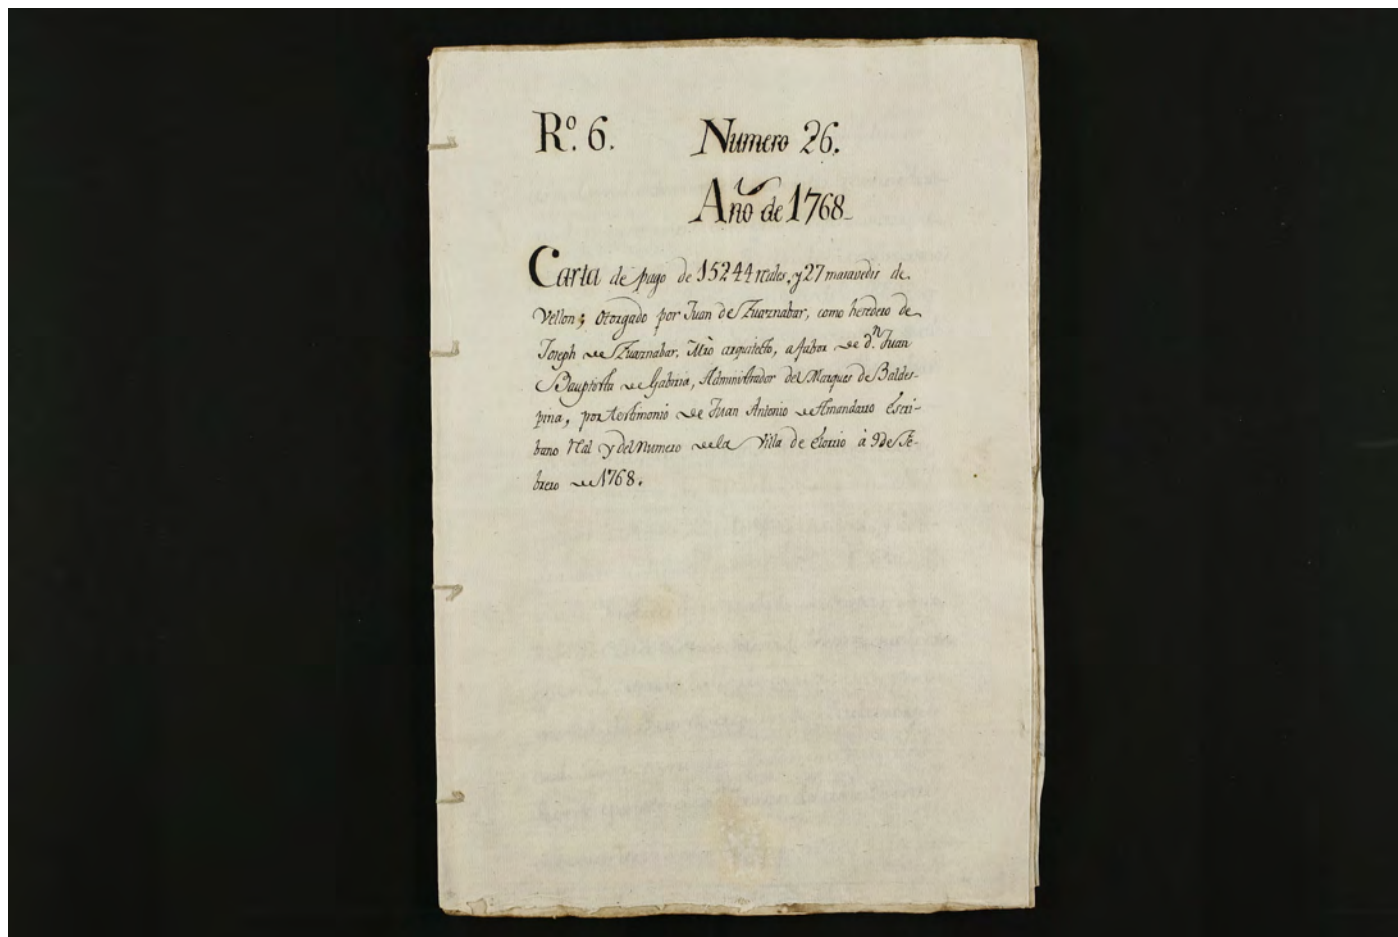 Rº. 6. Numero 26.
Año de 1768
Carta de pago de 15244 reales, y 27 maravedis de
Vellon; otorgado por Juan de Zuaznabar, como heredero de
Joseph de Zuaznabar, Mrô arquitecto, a fabor de dn. Juan
Bauptista de Gabiria, Administrador del Marques de Baldes-
pina, por testimonio de Juan Antonio de Amandarro Escri-
bano Rl y del Numero de la Villa de Elorrio à 9 de Fe-
brero de 1768.